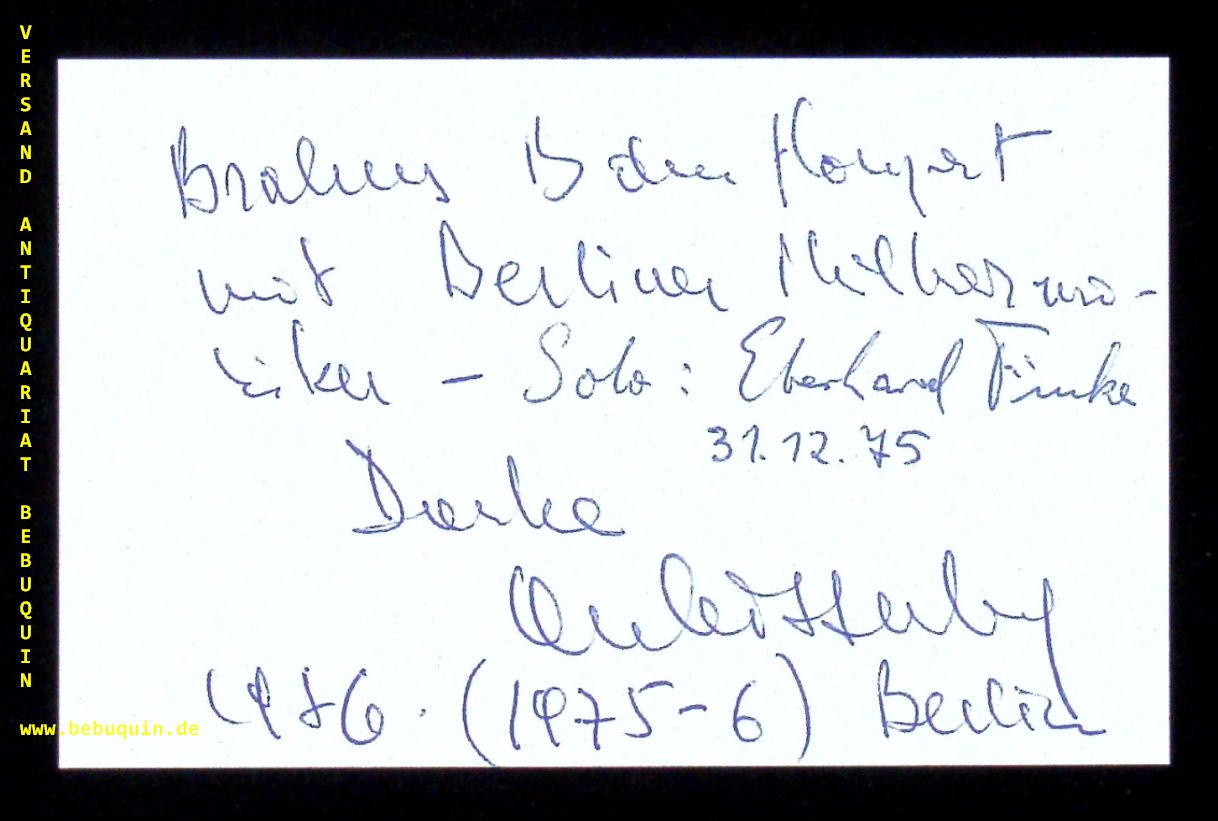 VERSAND ANTIQUARIAT BEBUQUIN
www.bebuquin.de
Brahms B dur Konzert
mit Berliner Philharmo-
niker – Solo: Eberhard Finke
31.12.75
Danke
1976. (1975-6) Berlin